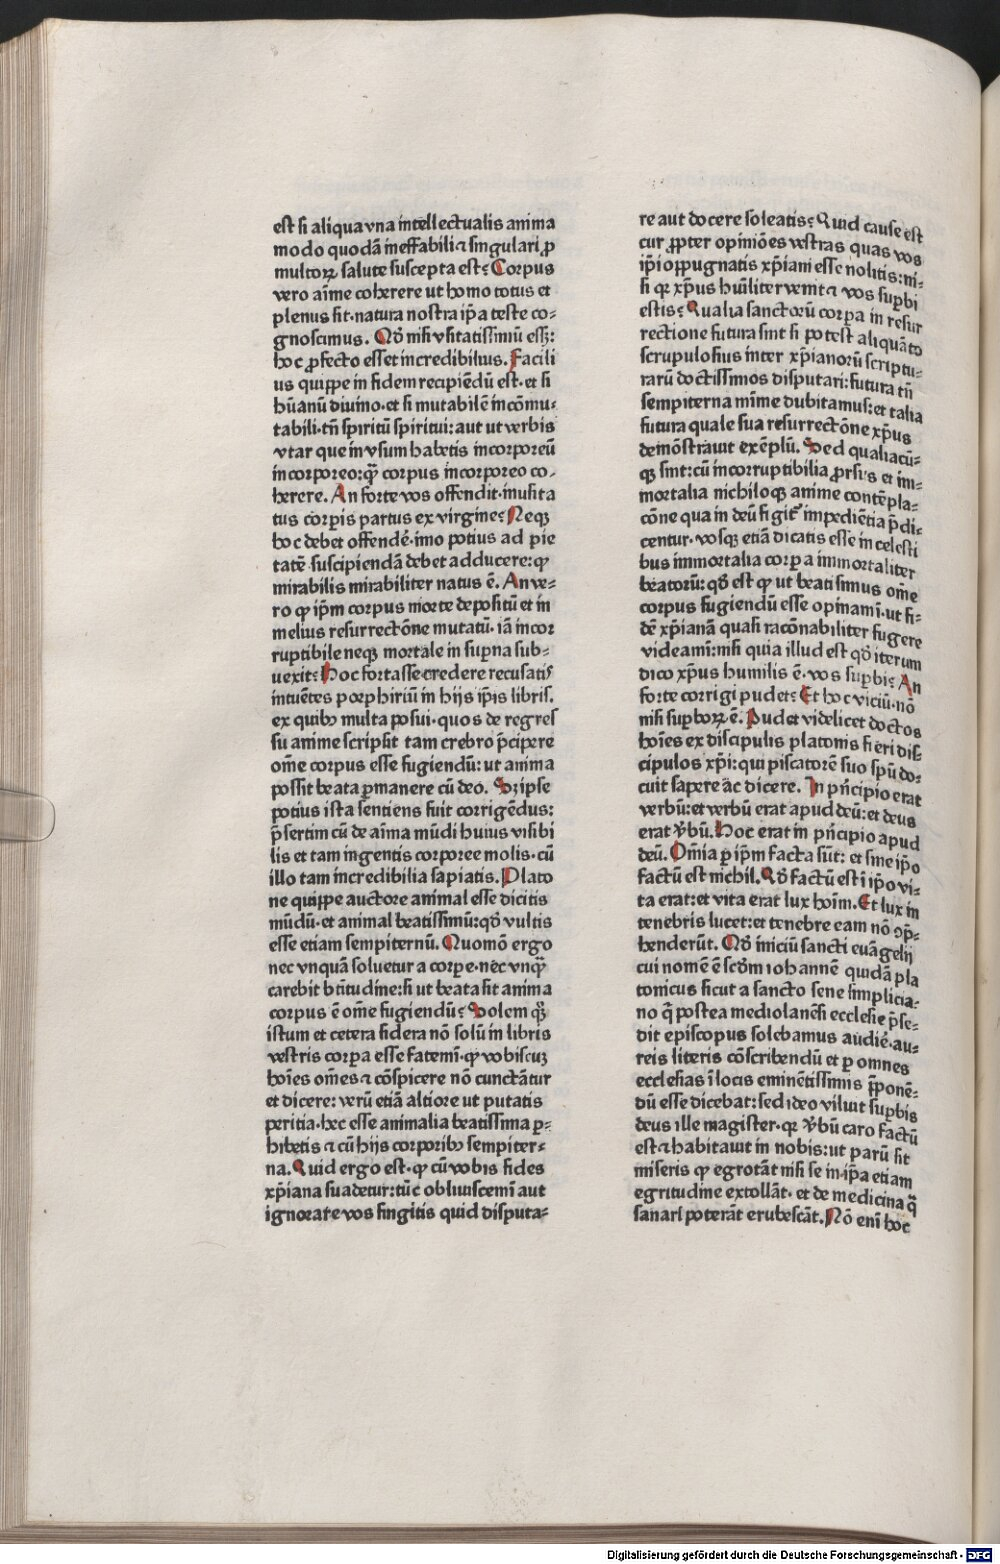 est si aliqua vna intellectualis anima
modo quodā ineffabili ⁊ singulari ꝓ
multoꝝ salute suscepta est? Corpus
vero aīme coherere ut homo totus et
plenus sit· natura nostra ip̄a teste co-
gnoscimus. Qd̄ nisi vsitatissimū essꝫ:
hoc ꝓfecto esset incredibilius. Facili
us quippe in fidem recipiēdū est· et si
hūanū diuino· et si mutabilē incōmu-
tabili· tn̄ spiritū spiritui: aut ut verbis
vtar que in vsum habetis incorporeū
incorporeo: qꝫ̄ corpus incorporeo co-
herere. An forte vos offendit· inusita
tus corꝑis partus ex virgine? Neqꝫ
hoc debet offendē· imo potius ad pie
tatē suscipiendā debet adducere: ꝙ
mirabilis mirabiliter natus ē. An ve-
ro ꝙ ip̄m corpus morte depositū et in
melius resurrectōne mutatū· iā incor
ruptibile neqꝫ mortale in suꝑna sub-
uexit? Hoc fortasse credere recusatis
intuētes porphiriū in hijs ip̄is libris.
ex quibꝰ multa posui· quos de regres
su anime scripsit tam crebro p̄cipere
om̄e corpus esse fugiendū: ut anima
possit beata ꝑmanere cū deo. Sꝫ ipse
potius ista sentiens fuit corrigēdus:
p̄sertim cū de aīma mūdi huius visibi
lis et tam ingentis corporee molis· cū
illo tam incredibilia sapiatis. Plato
ne quippe auctore animal esse dicitis
mūdū· et animal beatissimū: qd̄ vultis
esse etiam sempiternū. Quomō ergo
nec vnquā soluetur a corꝑe· nec vnqꝫ̄
carebit btitudine: si ut beata sit anima
corpus ē om̄e fugiendū? Solem qꝫ
istum et cetera sidera nō solū in libris
vestris corꝑa esse fatemī· ꝙ vobiscuꝫ
hoīes om̄es ⁊ cōspicere nō cunctātur
et dicere: verū etiā altiore ut putatis
peritia· hec esse animalia beatissima ꝑ-
hibetis ⁊ cū hijs corporibꝰ sempiter-
na. Quid ergo est· ꝙ cū vobis fides
xp̄iana suadetur: tūc obliuiscemī aut
ignorare vos fingitis quid disputa-
re aut docere soleatis? Quid cause est
cur ꝓpter opiniōes vestras quas vos
ip̄i oppugnatis xp̄iani esse nolitis: ni-
si qꝛ xp̄us hūiliter venit ⁊ vos suꝑbi
estis? Qualia sanctorū corꝑa in resur
rectione futura sint si potest aliquāto
scrupulosius inter xp̄ianorū scriptu-
rarū doctissimos disputari: futura tn̄
sempiterna mīme dubitamus: et talia
futura quale sua resurrectōne xp̄us
demōstrauit exēplū. Sed qualiacū-
qꝫ sint: cū incorruptibilia ꝓrsus et im-
mortalia nichiloqꝫ anime contēpla-
cōne qua in deū figit᷑ impediētia p̄di-
centur· vosqꝫ etiā dicatis esse in celesti
bus immortalia corꝑa immortaliter
beatorū: qd̄ est ꝙ ut beati simus om̄e
corpus fugiendū esse opinamī· ut fi-
dē xp̄ianā quasi racōnabiliter fugere
videamī: nisi quia illud est qd̄ iterum
dico xp̄us humilis ē· vos suꝑbi? An
forte corrigi pudet? Et hoc viciū· nō
nisi suꝑboꝝ ē. Pudet videlicet doctos
hoīes ex discipulis platonis fieri dis-
cipulos xp̄i: qui piscatorē suo spū do-
cuit sapere ac dicere. In pn̄cipio erat
verbū: et verbū erat apud deū: et deus
erat v̄bū. Hoc erat in pn̄cipio apud
deū. Om̄ia ꝑ ip̄m facta sūt: et sine ip̄o
factū est nichil. Qd̄ factū est ī ip̄o vi-
ta erat: et vita erat lux hoīm. Et lux in
tenebris lucet: et tenebre eam nō ꝯp̄-
henderūt. Qd̄ iniciū sancti euāgelij
cui nomē ē scd̄m iohannē quidā pla
tonicus sicut a sancto sene simplicia-
no q̄ postea mediolanēsi ecclesie p̄se-
dit episcopus solebamus audiē· au-
reis literis cōscribendū et ꝑ omnes
ecclesias ī locis eminētissimis ꝓponē-
dū esse dicebat: sed ideo viluit suꝑbis
deus ille magister· qꝛ v̄bū caro factū
est ⁊ habitauit in nobis: ut parū sit
miseris ꝙ egrotāt nisi se in ip̄a etiam
egritudine extollāt· et de medicina q̄
sanari poterāt erubescāt. Nō enī hoc
Digitalisierung gefördert durch die Deutsche Forschungsgemeinschaft - DFG